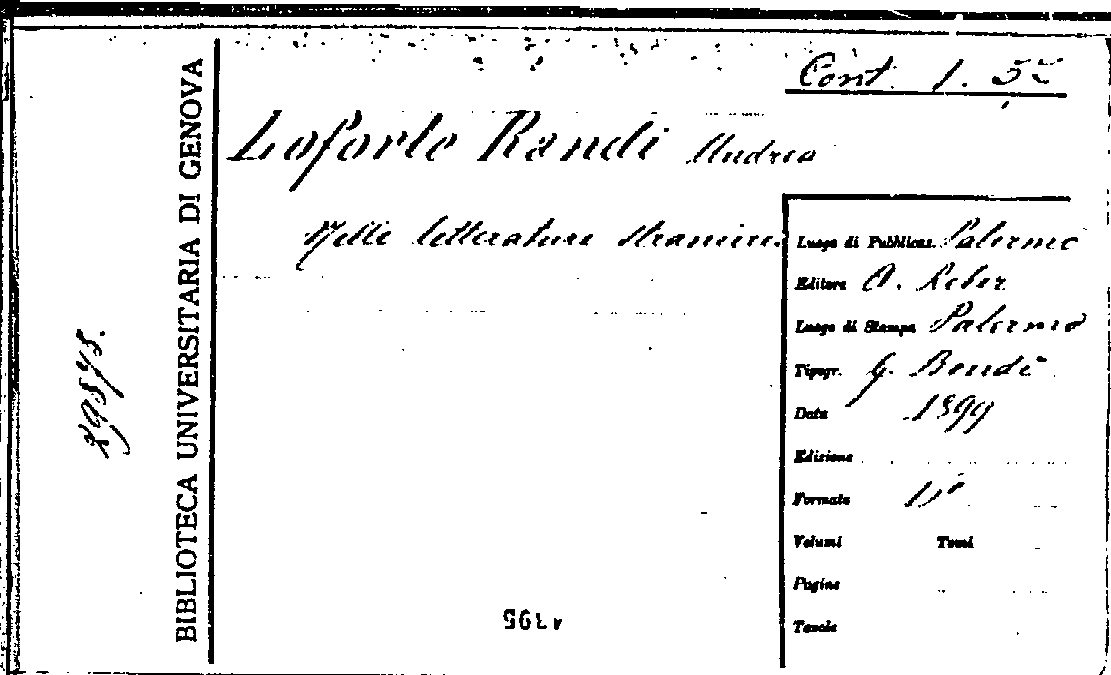 Cont. 1. 52
Loforte Randi Andrea
Nelle letterature straniere
Luogo di Pubblicaz. Palermo
Editore A. Reber
Luogo di Stampa Palermo
Tipogr. G. Bondì
Data 1899
Edizione
Formato
Volumi Tomi
Pagine
Tavole
BIBLIOTECA UNIVERSITARIA DI GENOVA